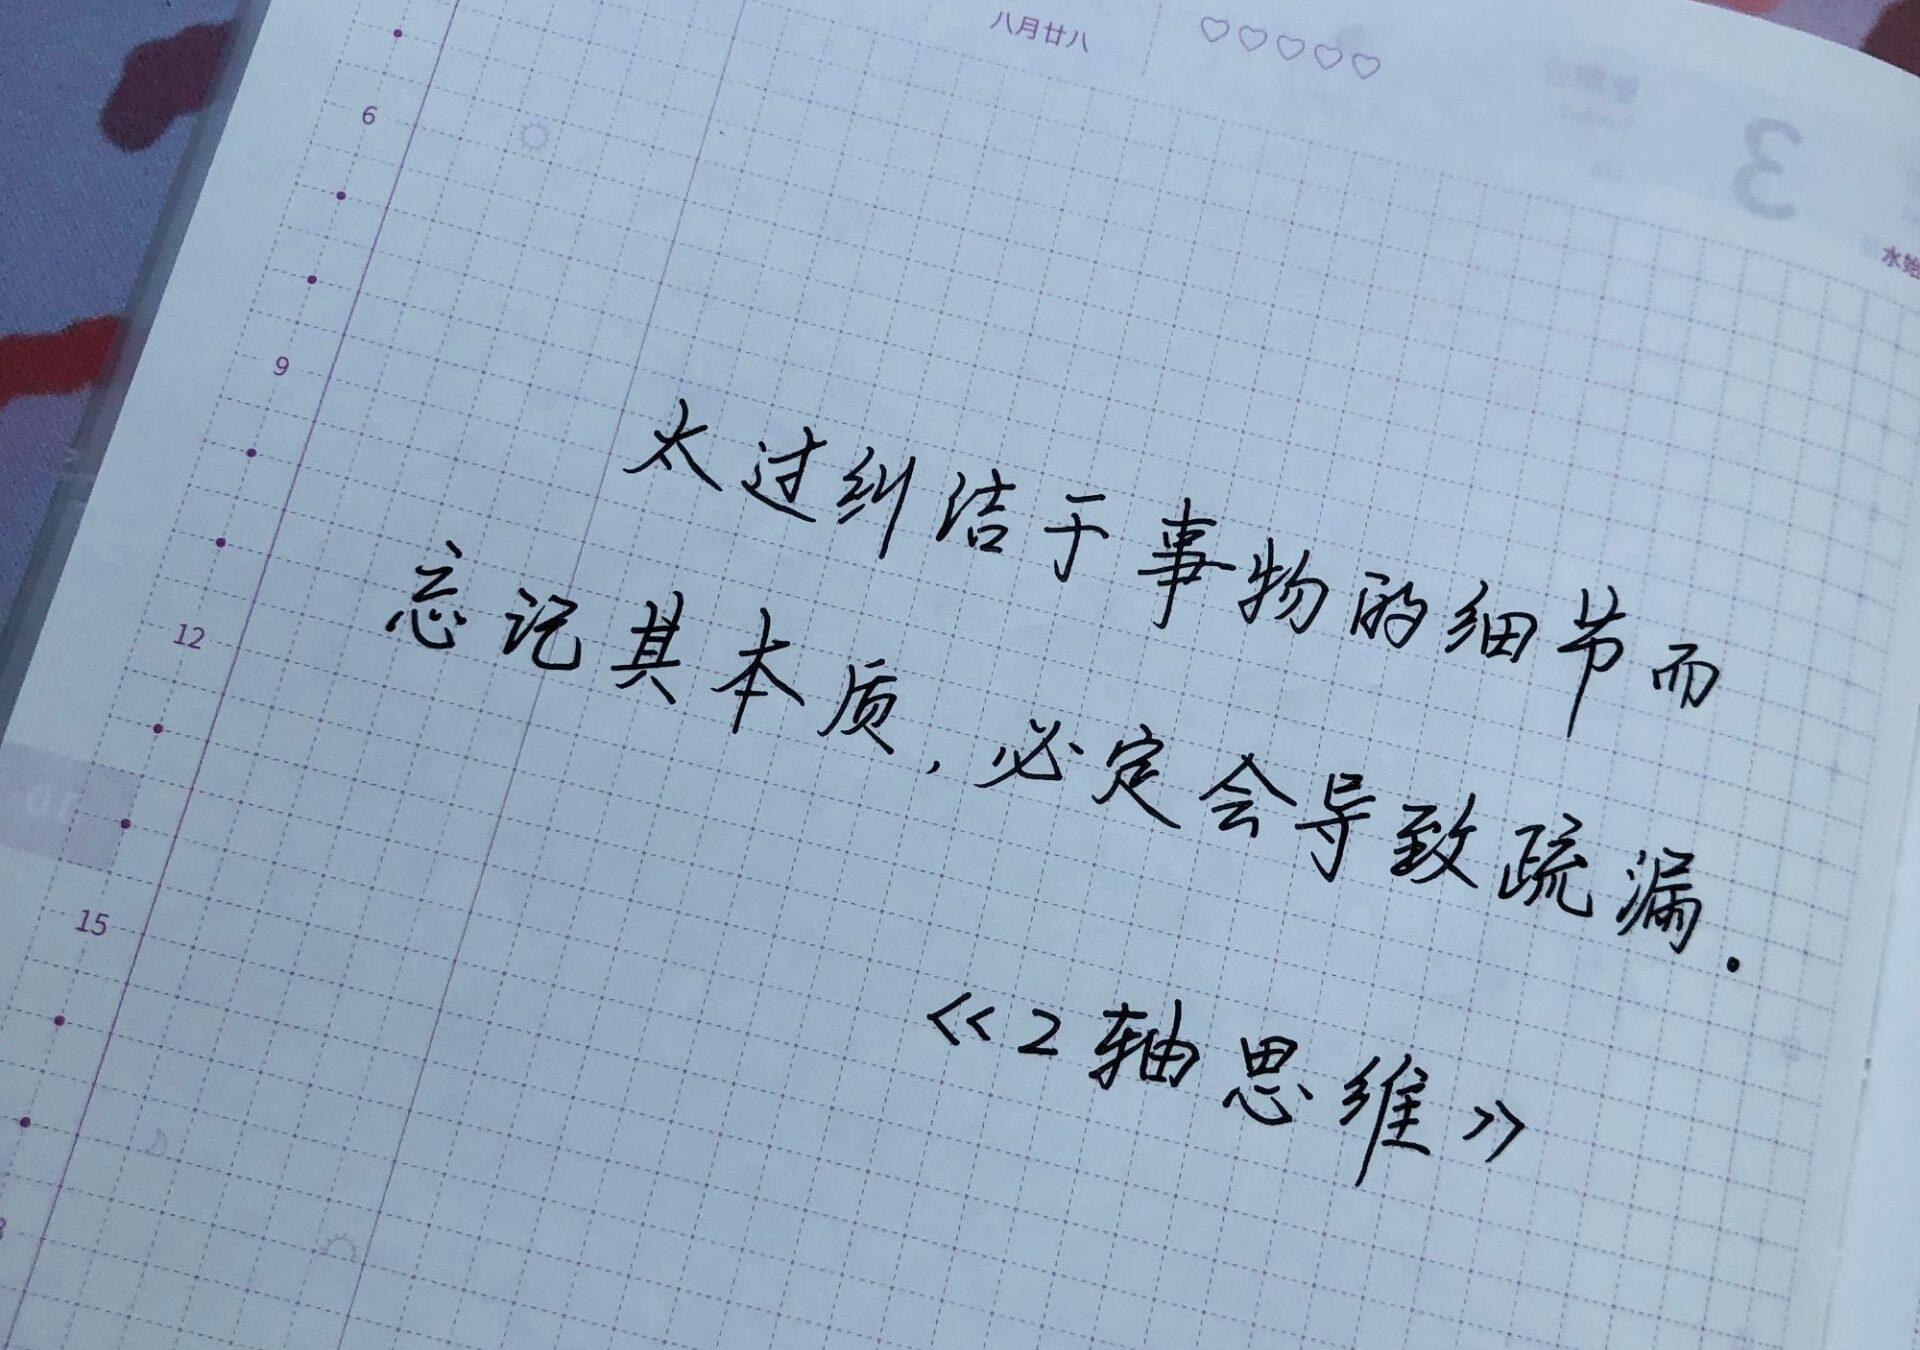 八月廿八
3
水始
6
9
12
15
太过纠洁于事物的细节而
忘记其本质，必定会导致疏漏.
《2轴思维》